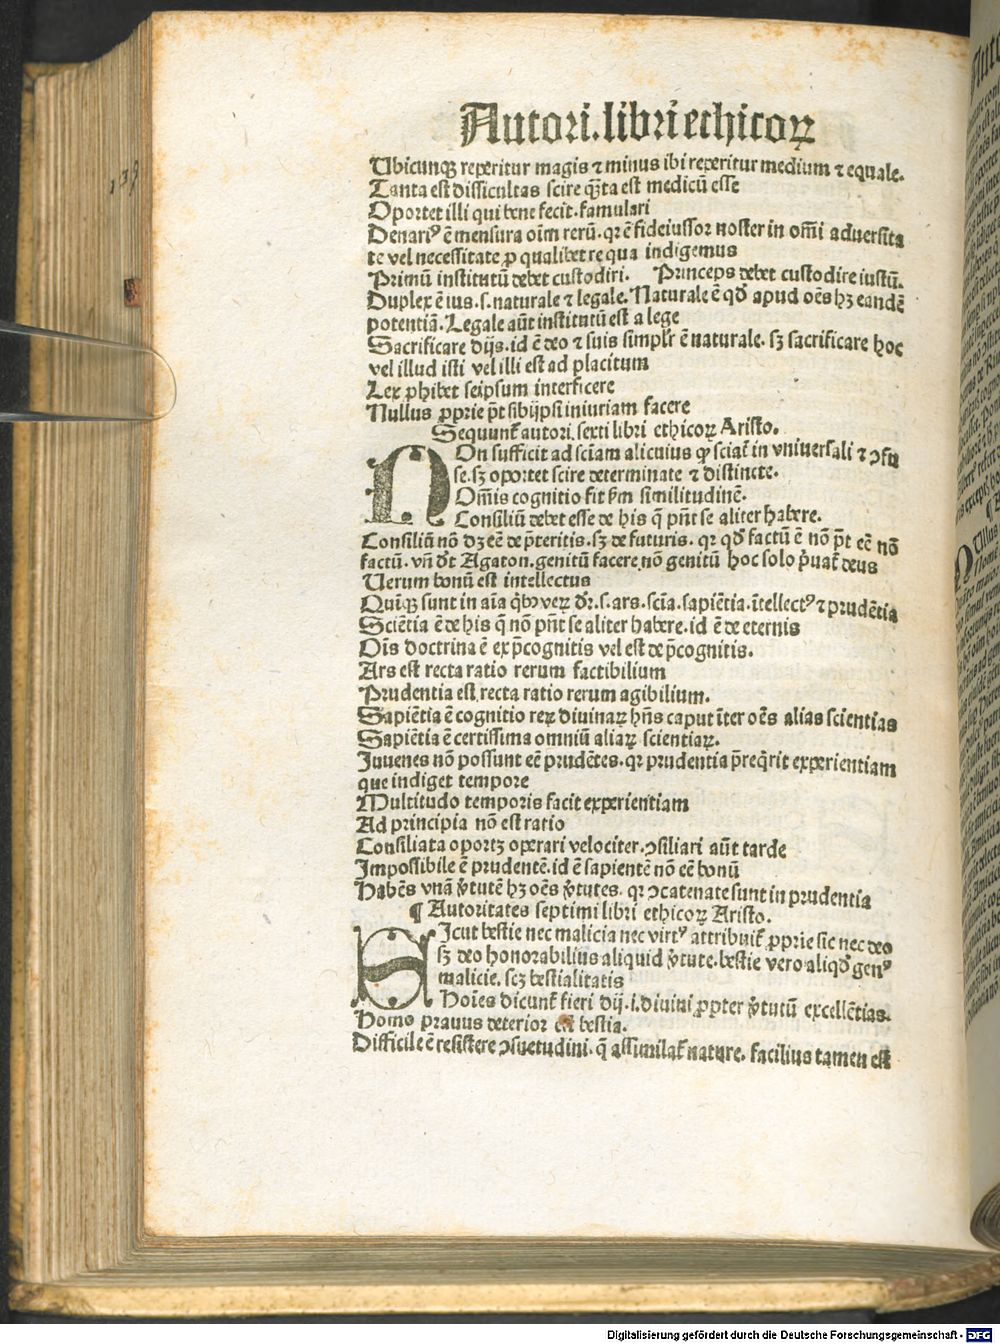 Autori.libri ethicoꝝ
Ubicunqꝫ reperitur magis ⁊ minus ibi reperitur medium ⁊ equale.
Tanta est difficultas scire qͣ̃ta est medicũ esse
Oportet illi qui bene fecit.famulari
Denariꝰ ẽ mensura oĩm rerũ.qꝛ ẽ fideiussor noster in om̃i aduersita
te vel necessitate ꝓ qualibet re qua indigemus
Primũ institutũ debet custodiri. Princeps debet custodire iustũ.
Duplex ẽ ius.s.naturale ⁊ legale.Naturale ẽ qď apud oẽs hꝫ eandẽ
potentiã.Legale aũt institutũ est a lege
Sacrificare dijs.id ẽ deo ⁊ suis simplr̃ ẽ naturale.sꝫ sacrificare hoc
vel illud isti vel illi est ad placitum
Lex ꝓhibet seipsum interficere
Nullus ꝓprie põt sibijpsi iniuriam facere
Sequunt̃ autori.sexti libri ethicoꝝ Aristo.
NOn sufficit ad sciam̃ alicuius ꝙ sciat̃ in vniuersali ⁊ ↄfu
se.sꝫ oportet scire determinate ⁊ distincte.
Om̃is cognitio fit ẜm similitudinẽ.
Consiliũ debet esse de his q̃ pñt se aliter habere.
Consiliũ nõ dꝫ eẽ de p̃teritis.sꝫ de futuris.qꝛ qď factũ ẽ nõ põt eẽ nõ
factũ.vñ dr̃t Agaton.genitũ facere nõ genitũ hoc solo p̃uat̃ deus
Uerum bonũ est intellectus
Quĩqꝫ sunt in aĩa qͥbꝰ veꝝ dr̃.s.ars.sciã.sapiẽtia.ĩtellectꝰ ⁊ prudẽtia
Sciẽtia ẽ de his q̃ nõ pñt se aliter habere.id ẽ de eternis
Oĩs doctrina ẽ ex p̃cognitis vel est de p̃cognitis.
Ars est recta ratio rerum factibilium
Prudentia est recta ratio rerum agibilium.
Sapiẽtia ẽ cognitio reꝝ diuinaꝝ hñs caput ĩter oẽs alias scientias
Sapiẽtia ẽ certissima omniũ aliaꝝ scientiaꝝ.
Juuenes nõ possunt eẽ prudẽtes.qꝛ prudentia p̃reqͥrit experientiam
que indiget tempore
Multitudo temporis facit experientiam
Ad principia nõ est ratio
Consiliata oportꝫ operari velociter.ↄsiliari aũt tarde
Impossibile ẽ prudentẽ.id ẽ sapientẽ nõ eẽ bonũ
Habẽs vnã v̾tutẽ hꝫ oẽs v̾tutes.qꝛ ↄcatenate sunt in prudentia
¶ Autoritates septimi libri ethicoꝝ Aristo.
SIcut bestie nec malicia nec virtꝰ attribuit̃ ꝓprie sic nec deo
sꝫ deo honorabilius aliquid v̾tute.bestie vero aliqď genꝰ
malicie.scꝫ bestialitatis
Hoĩes dicunt̃ fieri dij.i.diuini ꝓpter v̾tutũ excellẽtias.
Homo prauus deterior est bestia.
Difficile ẽ resistere ↄsuetudini.q̃ assimilat̃ nature.facilius tamen est
139
Digitalisierung gefördert durch die Deutsche Forschungsgemeinschaft - DFG